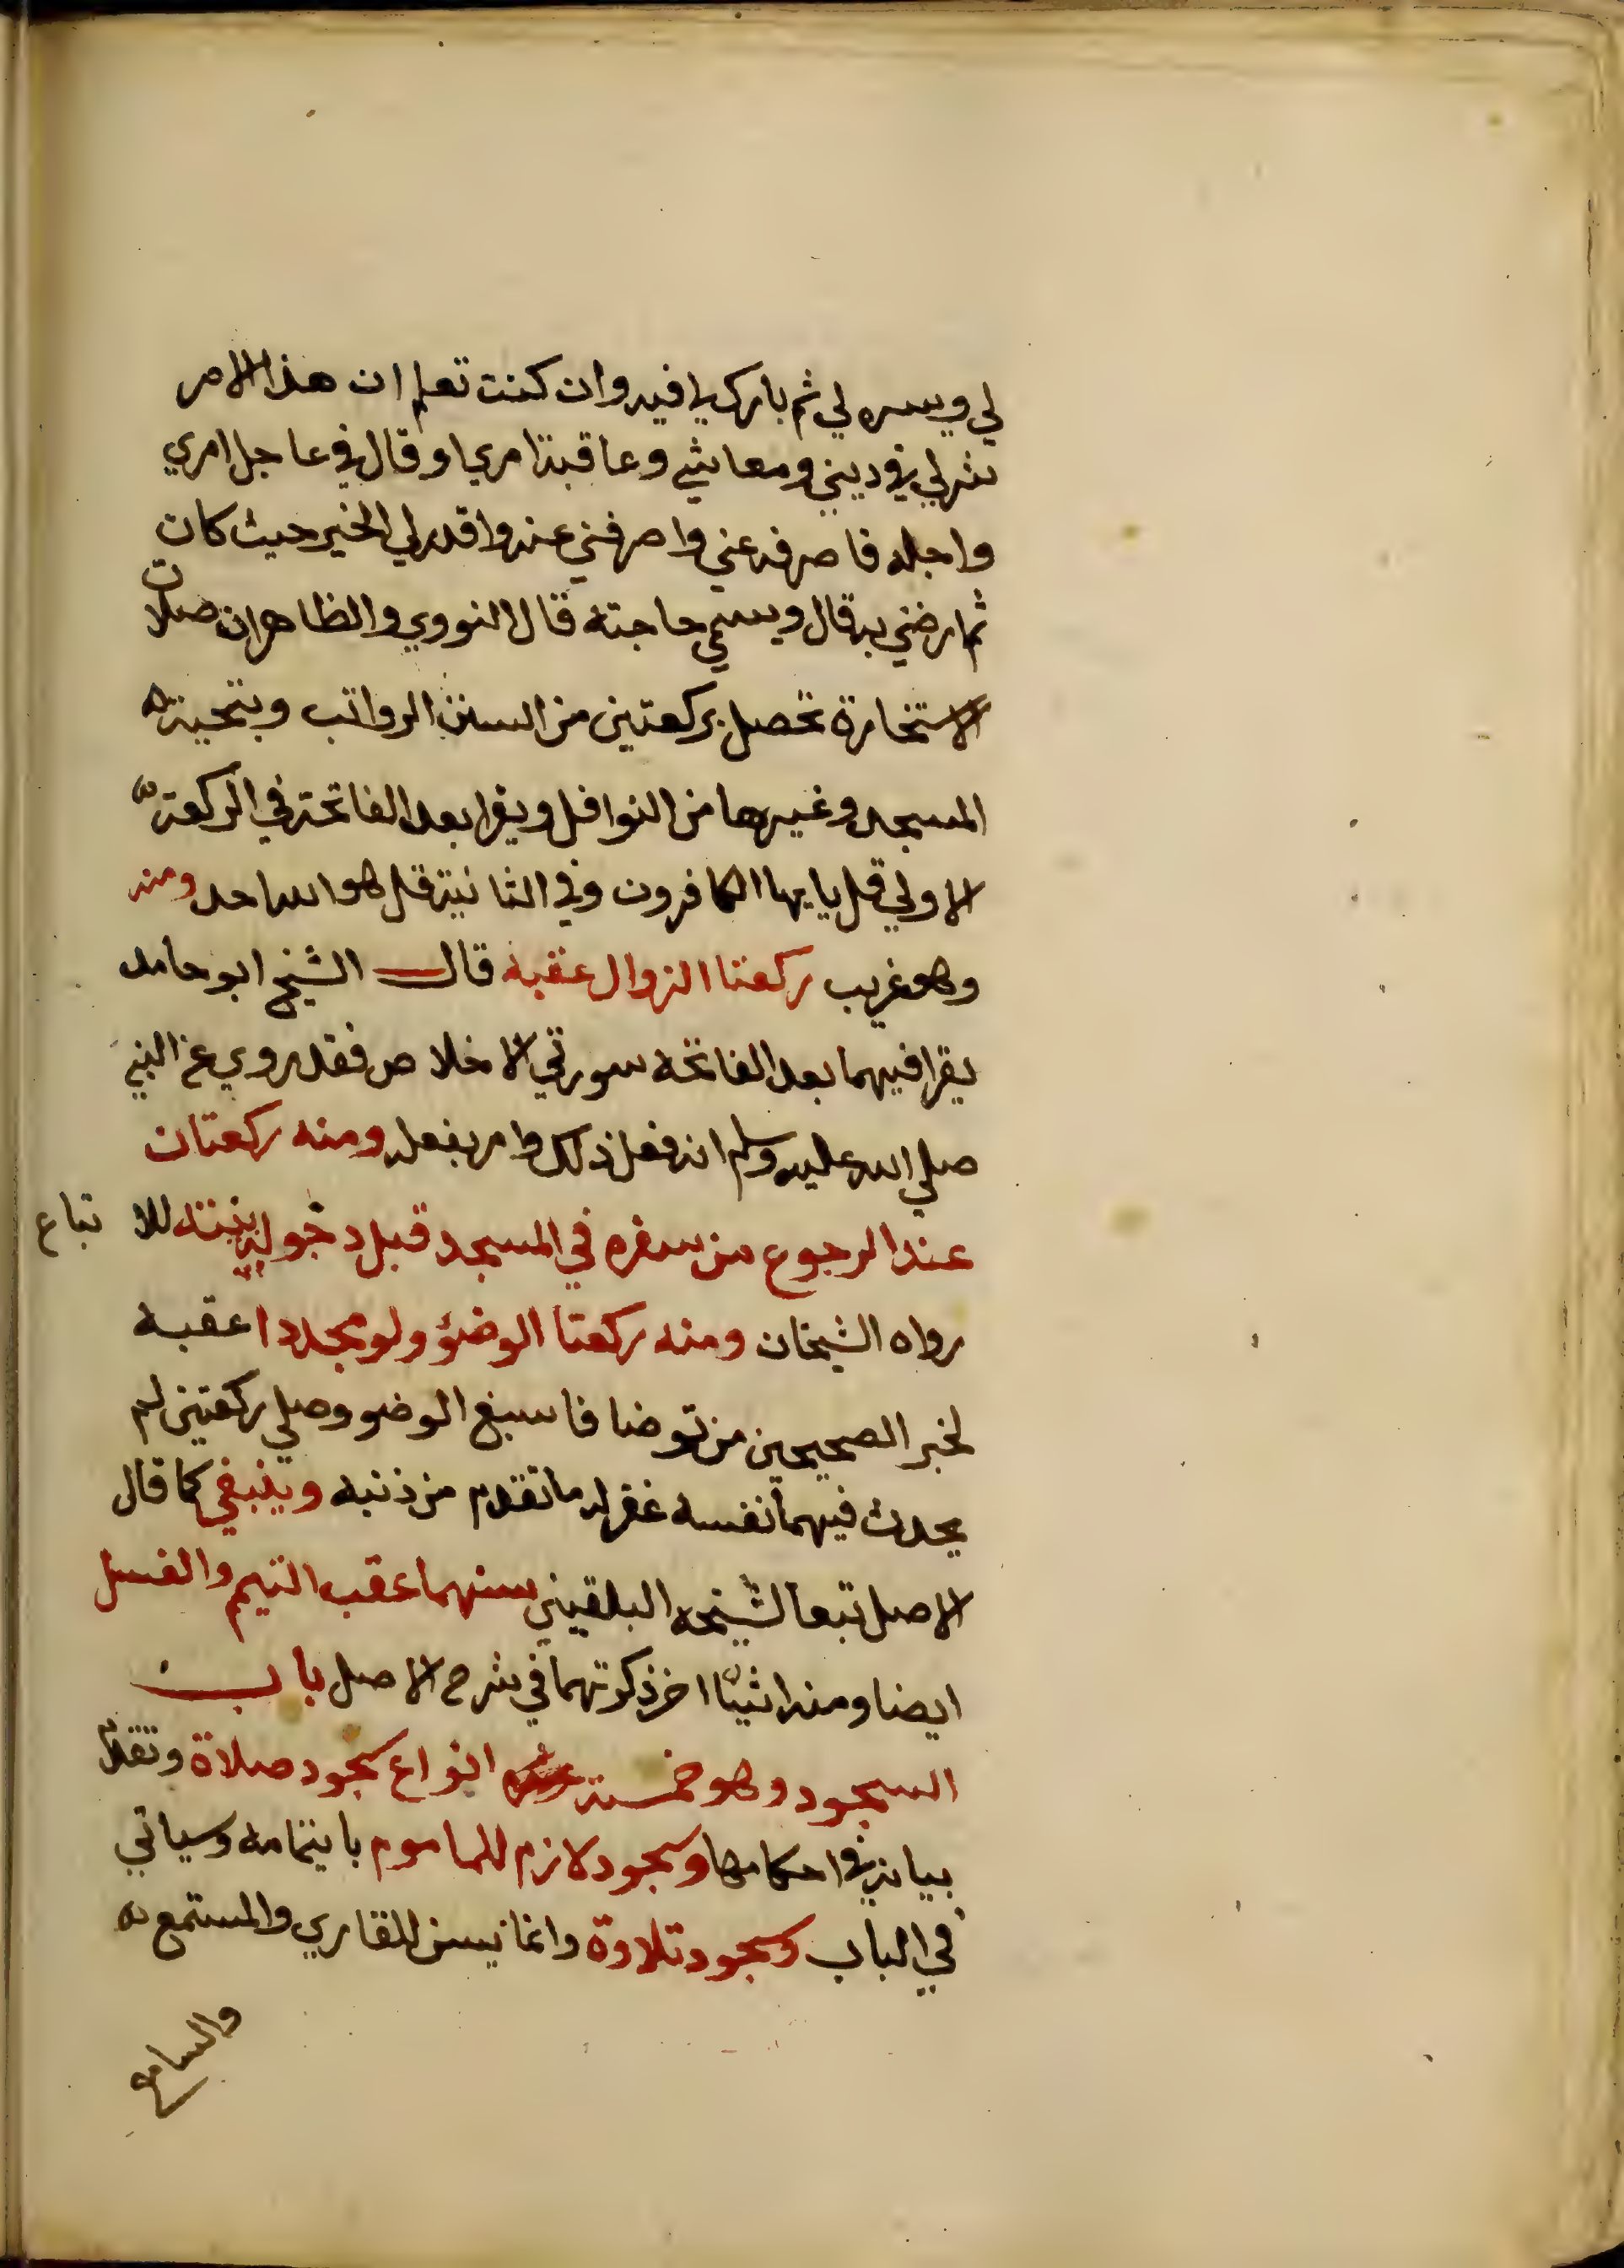 لي ويسره لي ثم بارك لي فيه وان كنت تعلم ان هذا الامر
شر لي في ديني ومعاشي وعاقبة امري او قال في عاجل امري
واجله فاصرفه عني واصرفني عنه واقدر لي الخير حيث كان
ثم ارضني به قال ويسمي حاجته قال النووي والظاهر ان صلات
الاستخارة تحصل بركعتين من السنن الرواتب وبتحية
المسجد وغيرها من النوافل ويقرا بعد الفاتحة في الركعة
الاولي قل يايها الكافرون وفي الثانية قل هو الله احد ومنه
وهو غريب ركعتا الزوال عقبه قال الشيخ ابو حامد
يقرا فيهما بعد الفاتحة سورتي الاخلاص فقد روي عن النبي
صلي الله عليه وسلم انه فعل ذلك وامر بفعله ومنه ركعتان
عند الرجوع من سفره في المسجد قبل دخوله بيته للاتباع
رواه الشيخان ومنه ركعتا الوضؤ ولو مجددا عقبه
لخبر الصحيحين من توضا فاسبغ الوضو وصلي ركعتين لم
يحدث فيهما نفسه غفر له ما تقدم من ذنبه وينبغي كما قال
الاصل تبعا لشيخه البلقيني سنهما عقب التيمم والغسل
ايضا ومنه اشيا اخر ذكرتها في شرح الاصل باب
السجود وهو خمسة انواع سجود صلاة وتقدم
بيانه في احكامها وسجود لازم للماموم بايتمامه وسياتي
في الباب وسجود تلاوة وانما يسن للقاري والمستمع له
والسامع